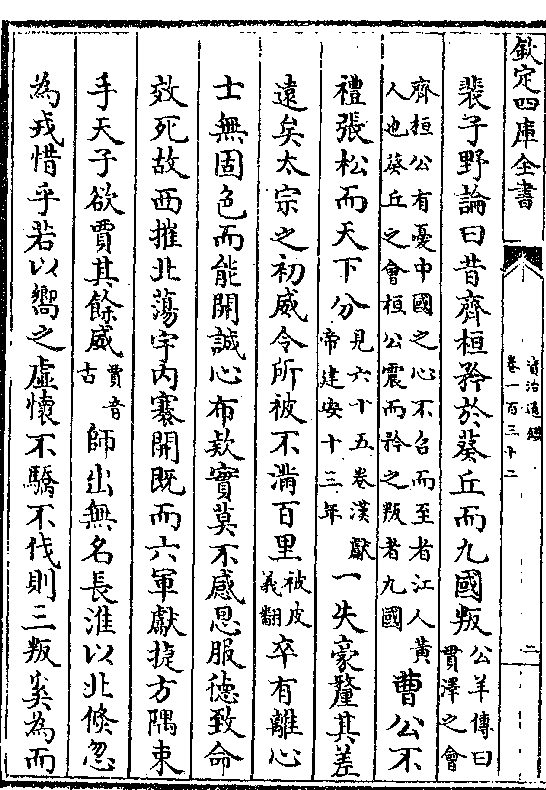 欽定四庫全書
資治通鑑
卷一百三十二
二
裴子野論曰昔齊桓矜於葵丘而九國叛公羊傳曰貫澤之會
齊桓公有憂中國之心不召而至者江人黃人也葵丘之會桓公震而矜之叛者九國曹公不
禮張松而天下分見六十五卷漢獻帝建安十三年一失豪釐其差
遠矣太宗之初威令所被不滿百里被皮義翻卒有離心
士無固色而能開誠心布欵實莫不感恩服德致命
效死故西摧北蕩宇内褰開既而六軍獻捷方隅束
手天子欲賈其餘威賈音古師出無名長淮以北倐忽
為戎惜乎若以嚮之虚懷不驕不伐則三叛奚為而